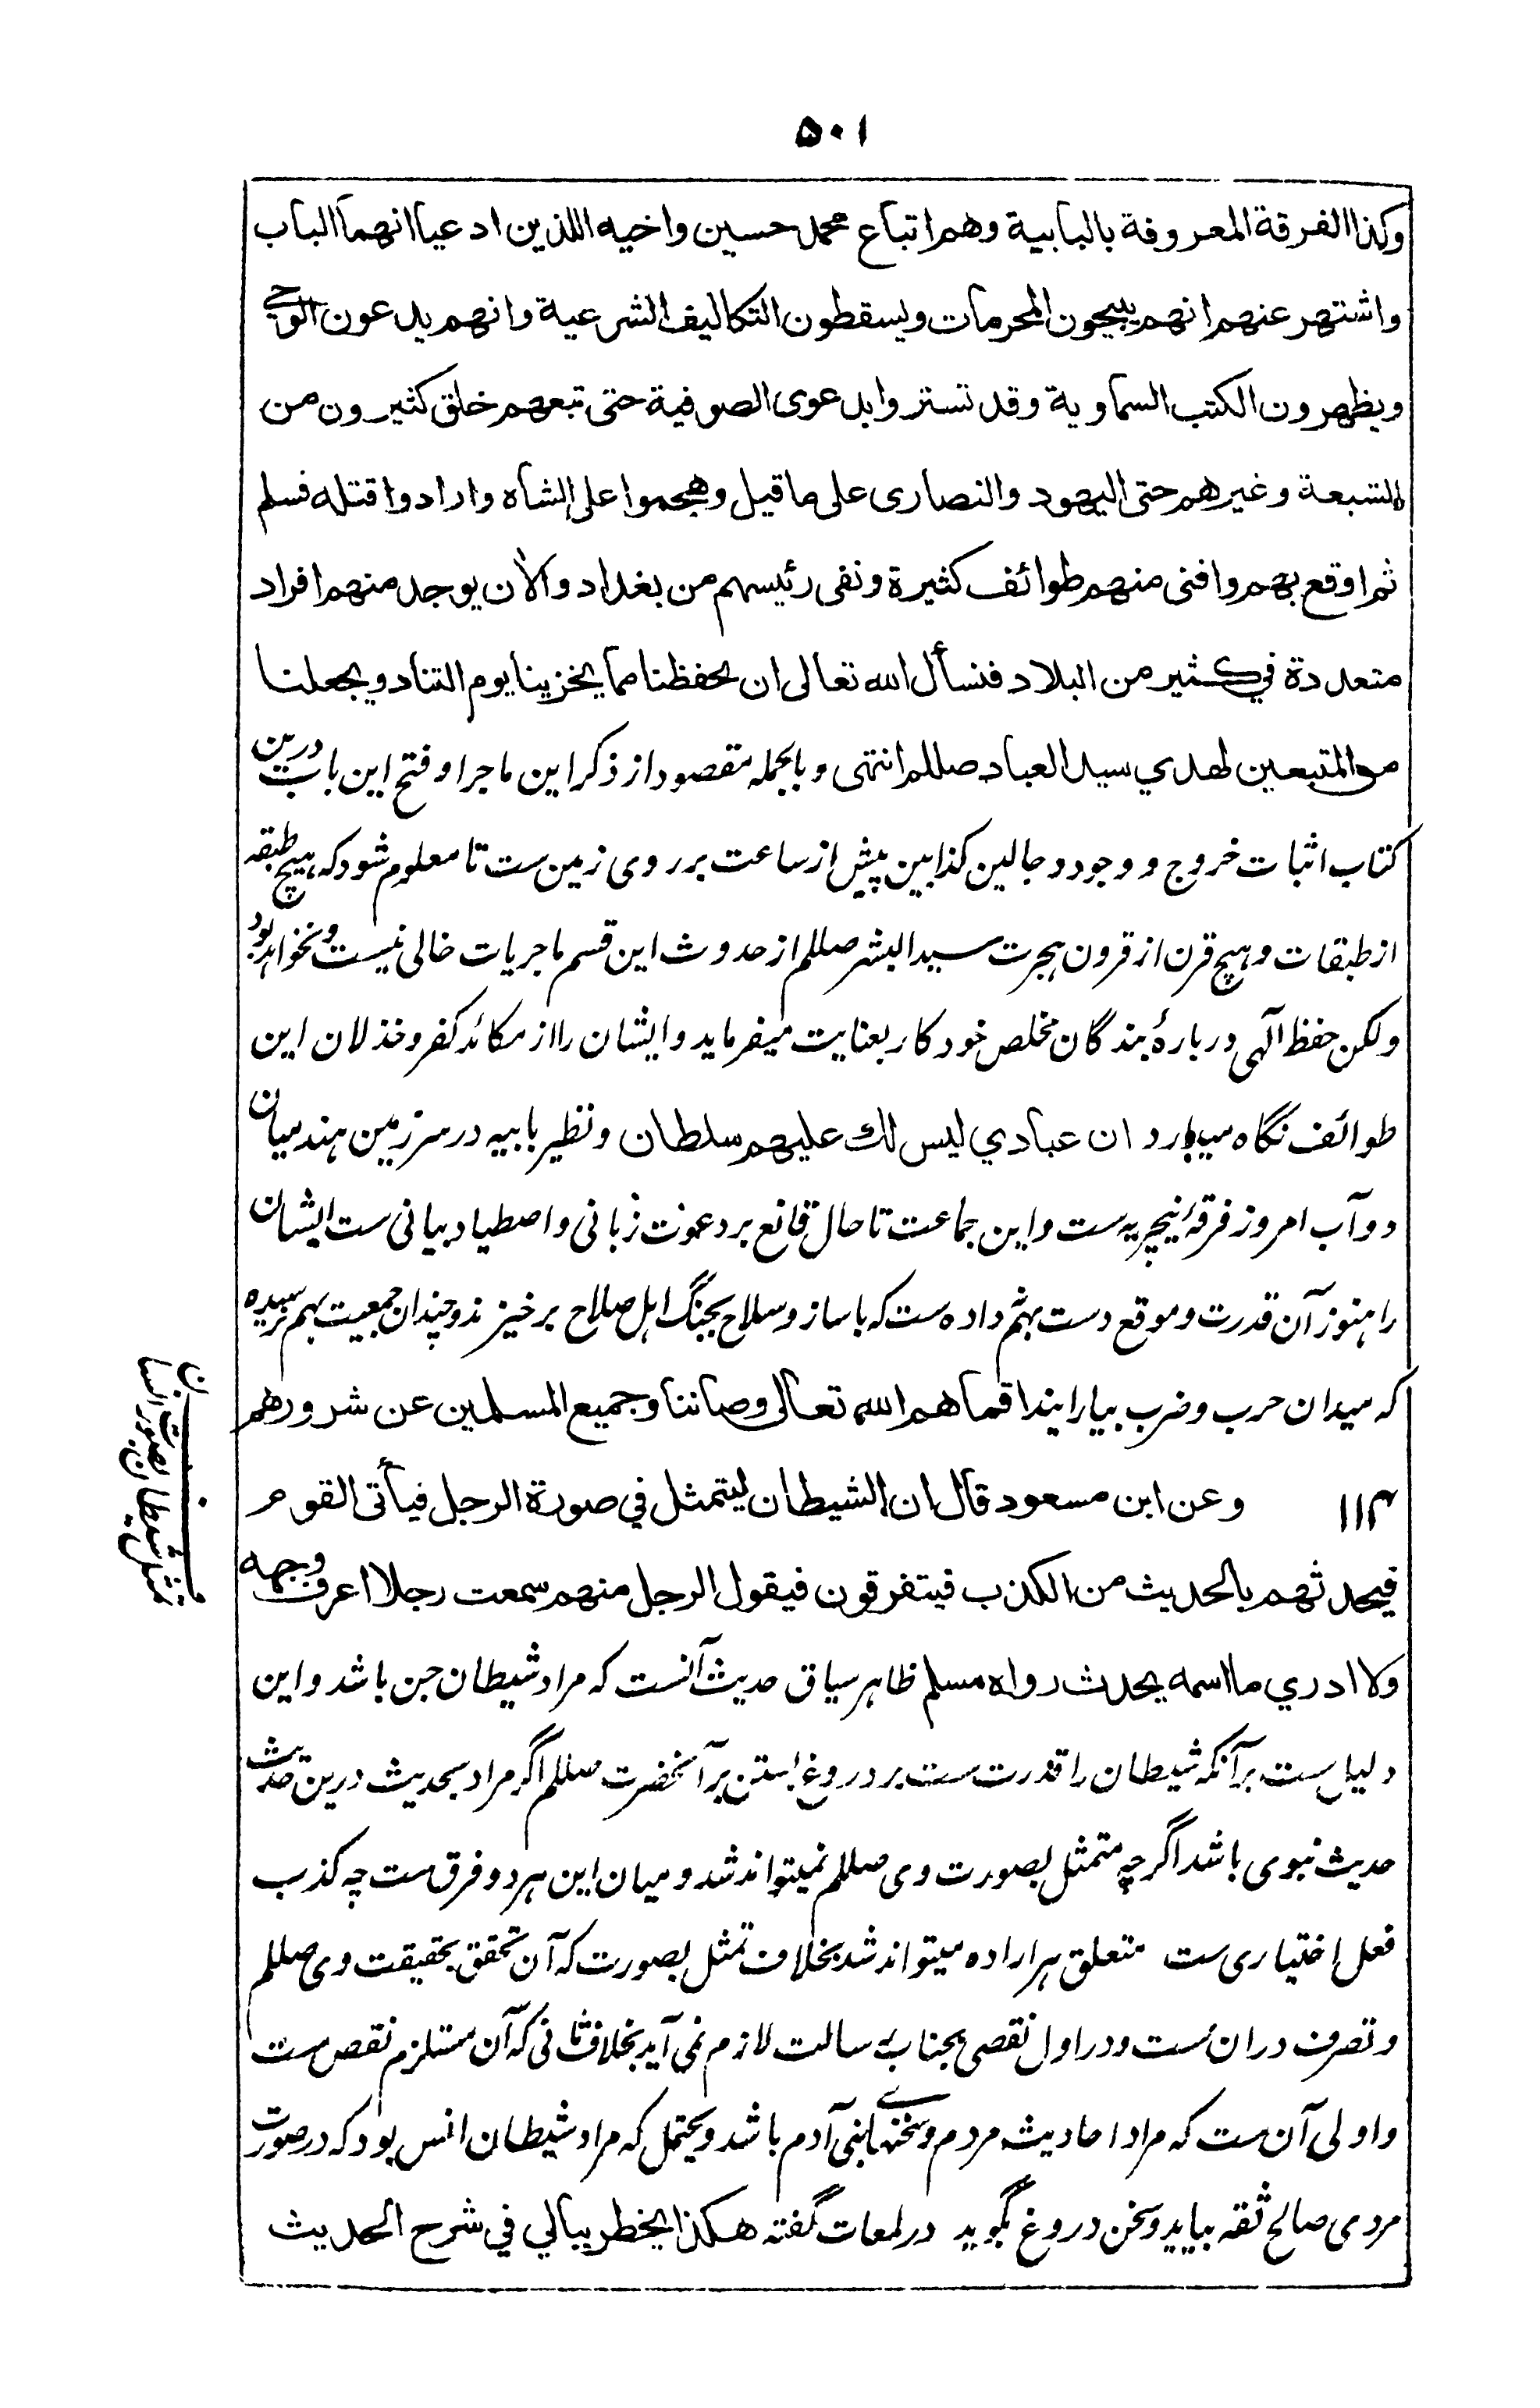 ۵۰۱
وكذا الفرقة المعروفة بالبابية وهم اتباع محمد حسين واخيه اللذين ادعيا انهما الباب
واشتهر عنهم انهم يبيحون المحرمات ويسقطون التكاليف الشرعية وانهم يدعون الوحي
ويظهرون الكتب السماوية وقد تستروا بدعوى الصوفية حتى تبعهم خلق كثيرون من
الشيعة وغيرهم حتى اليهود والنصارى على ما قيل وهجموا على الشاه وارادوا قتله فسلم
ثم اوقع بهم وافنى منهم طوائف كثيرة ونفى رئيسهم من بغداد والآن يوجد منهم افراد
متعددة في كثير من البلاد فنسأل الله تعالى ان يحفظنا مما يخزينا يوم التناد ويجعلنا
من المتبعين لهدي سيد العباد صللم انتهى وبالجمله مقصود از ذكر اين ماجرا و فتح اين باب درين
كتاب اثبات خروج و وجود دجالين كذابين پيش از ساعت بر روى زمين ست تا معلوم شود كه هيچ طبقه
از طبقات و هيچ قرن از قرون هجرت سيد البشر صللم از حدوث اين قسم ماجريات خالى نيست و نخواهد بود
ولكن حفظ آلهى دربارهٔ بندگان مخلص خود كار بعنايت ميفرمايد و ايشان را از مكائد كفر و خذلان اين
طوائف نگاه ميدارد ان عبادي ليس لك عليهم سلطان و نظير بابيه در سرزمين هند ميان
دوآب امروز فرقهٔ نيچريه ست و اين جماعت تا حال قانع بر دعوت زبانى و اصطياد بيانى ست ايشان
را هنوز آن قدرت و موقع دست بهم نداده ست كه با ساز و سلاح بجنگ اهل صلاح برخيزند و چندان جمعيت بهم نرسيده
كه ميدان حرب و ضرب بيارايند اقماهم الله تعالى وصاننا وجميع المسلمين عن شرورهم
۱۱۴ وعن ابن مسعود قال ان الشيطان ليتمثل في صورة الرجل فيأتى القوم
فيحدثهم بالحديث من الكذب فيتفرقون فيقول الرجل منهم سمعت رجلا اعرف وجهه
ولا ادري ما اسمه يحدث رواه مسلم ظاهر سياق حديث آنست كه مراد شيطان جن باشد و اين
دليل ست برآنكه شيطان را قدرت ست بر دروغ بستن بر آنحضرت صللم اگر مراد بحديث درين حديث
حديث نبوى باشد اگرچه متمثل بصورت وى صللم نميتواند شد و ميان اين هر دو فرق ست چه كذب
فعل اختيارى ست متعلق هر اراده ميتواند شد بخلاف تمثل بصورت كه آن تحقق بحقيقت وى صللم
و تصرف دران ست و در اول نقصى بجناب رسالت لازم نمى آيد بخلاف ثانى كه آن مستلزم نقص ست
و اولى آن ست كه مراد احاديث مردم و سخنهاى بنى آدم باشد و يحتمل كه مراد شيطان انس بود كه در صورت
مردى صالح ثقه بيايد و سخن دروغ بگويد در لمعات گفته هكذا يخطر ببالي في شرح الحديث
تمثل شيطان بصورت انسان